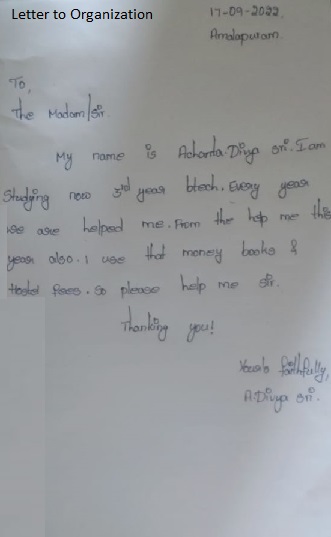 Letter to Organization
17-09-2022.
Amalapuram.
To,
The Madam/sir.
My name is Acharta.Divya sri. I am
Studying now 3rd year btech. Every year
we are helped me. From the help me this
year also. I use that money books &
Hostel fees. so please help me sir.
Thanking you!
Yours faithfully,
A.Divya sri.